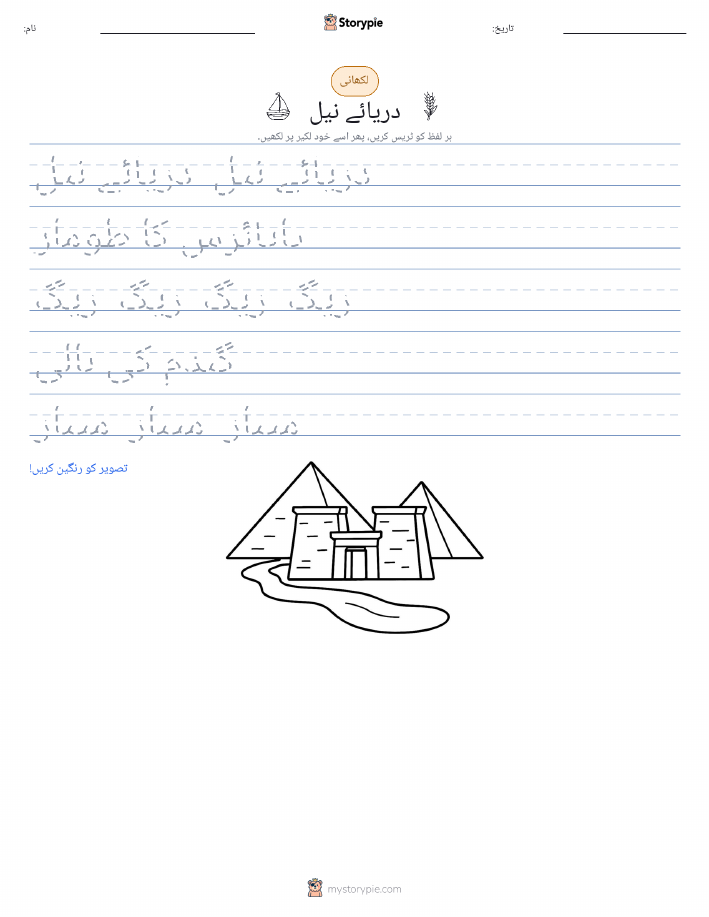 نام:
Storypie
تاریخ:
لکھائی
دریائے نیل
ہر لفظ کو ٹریس کریں، پھر اسے خود لکیر پر لکھیں۔
دریائے نیل دریائے نیل
پاپائرس کا طومار
گندم کی بالی
تصویر کو رنگین کریں!
mystorypie.com